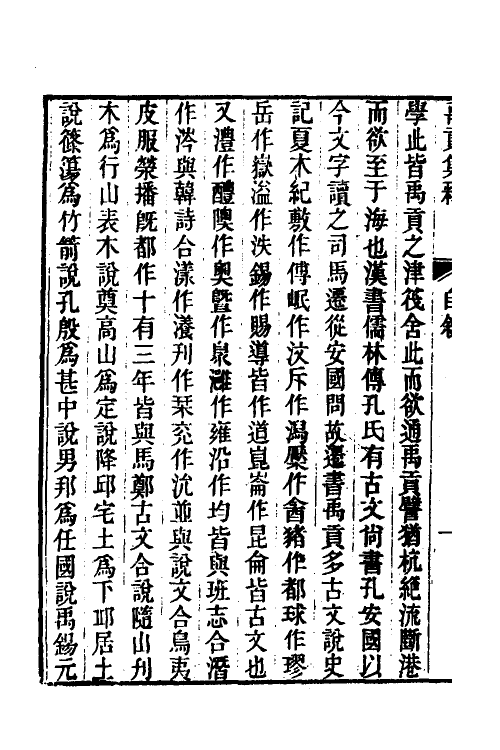 學此皆禹貢之津筏舍此而欲通禹貢譬猶杭絕流斷港
而欲至于海也漢書儒林傳孔氏有古文尚書孔安國以
今文字讀之司馬遷從安國問故遷書禹貢多古文說史
記夏木紀敷作傅岷作汶斥作潟檿作酓豬作都球作璆
岳作嶽溢作泆錫作賜導皆作道崑崙作昆侖皆古文也
又澧作醴隩作奧曁作臮灉作雍沿作均皆與班志合潛
作涔與韓詩合漾作瀁刋作栞兖作沇並與說文合鳥夷
皮服滎播旣都作十有三年皆與馬鄭古文合說隨山刋
木爲行山表木說奠高山爲定說降邱宅土爲下邱居土
說篠簜爲竹箭說孔殷爲甚中說男邦爲任國說禹錫元
禹貢集釋
自叙
一